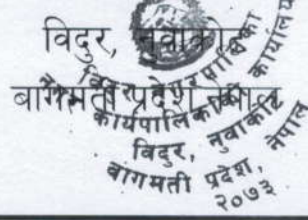 विदुर, नुवाकोट
बागमती प्रदेश, नेपाल
विदुर नगरपालिका
कार्यपालिकाको कार्यालय
विदुर, नुवाकोट
बागमती प्रदेश, नेपाल
२०७३